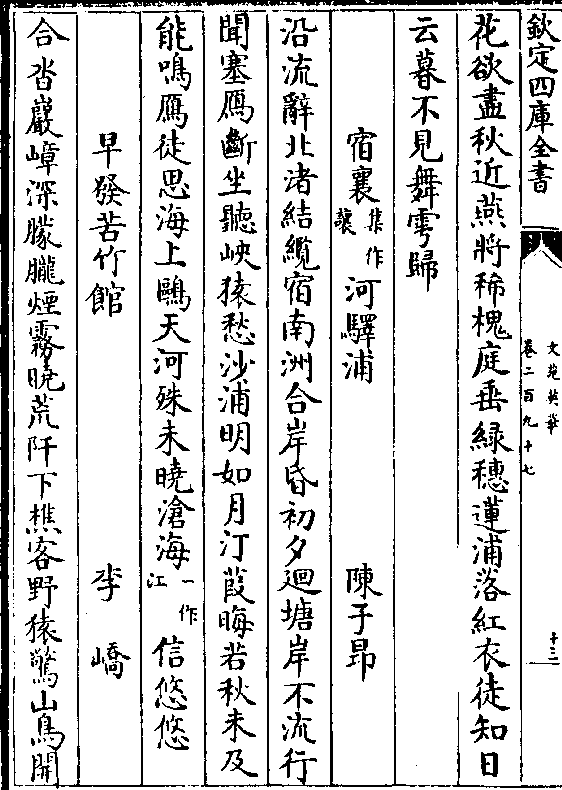 欽定四庫全書
文苑英華
卷二百九十七
十三
花欲盡秋近燕將稀槐庭垂綠穗蓮浦落紅衣徒知日
云暮不見舞雩歸
宿襄集作穰河驛浦 陳子昂
沿流辭北渚結纜宿南洲合岸昏初夕迴塘岸不流行
聞塞鴈斷坐聽峽猿愁沙浦明如月汀葭晦若秋未及
能鳴鴈徒思海上鷗天河殊未曉滄海一作江信悠悠
早發苦竹館 李嶠
合沓巖嶂深朦朧煙霧曉荒阡下樵客野猿驚山鳥開